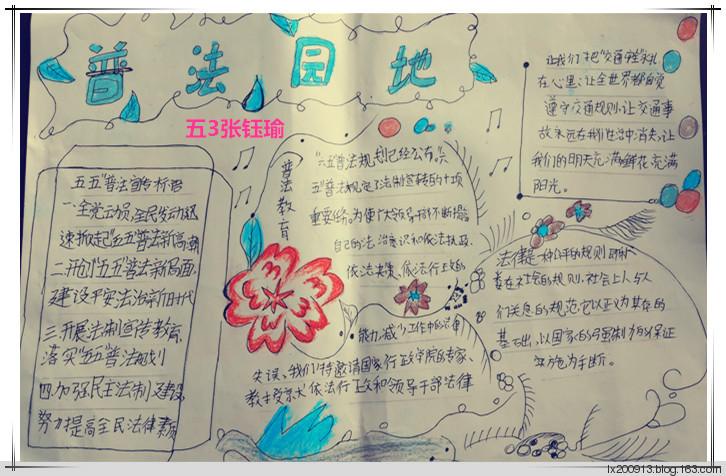 普法园地
五3张钰瑜
五五"普法宣传标语
一.全党动员,全民发动迅
速掀起"五五"普法新高潮
二.开创"五五"普法新局面,
建设平安法治新时代
三.开展法制宣传教育,
落实"五五"普法规划
四.加强民主法制建设
努力提高全民法律素质
普法教育
"六五"普法规划已经公布。"六
五"普法规定了法制宣传的十项
重要任务。为使广大领导干部不断提高
自己的法治意识和依法执政、
依法决策、依法行政的
能力,减少工作中的法律
失误,我们特邀请国家行政学院的专家、
教授 依法行政和领导干部法律
让我们把"交通牢
在心里;让全世界都自觉
遵守交通规则,让交通事
故永远在我们生活中消失,让
我们的明天充满鲜花充满
阳光。
法律是一种公平的规则
着在社会的规则,社会上人与人
们关息的规范,它以正义为其存的
基础,以国家的强制力以保证
实施为手断。
lx200913.blog.163.com